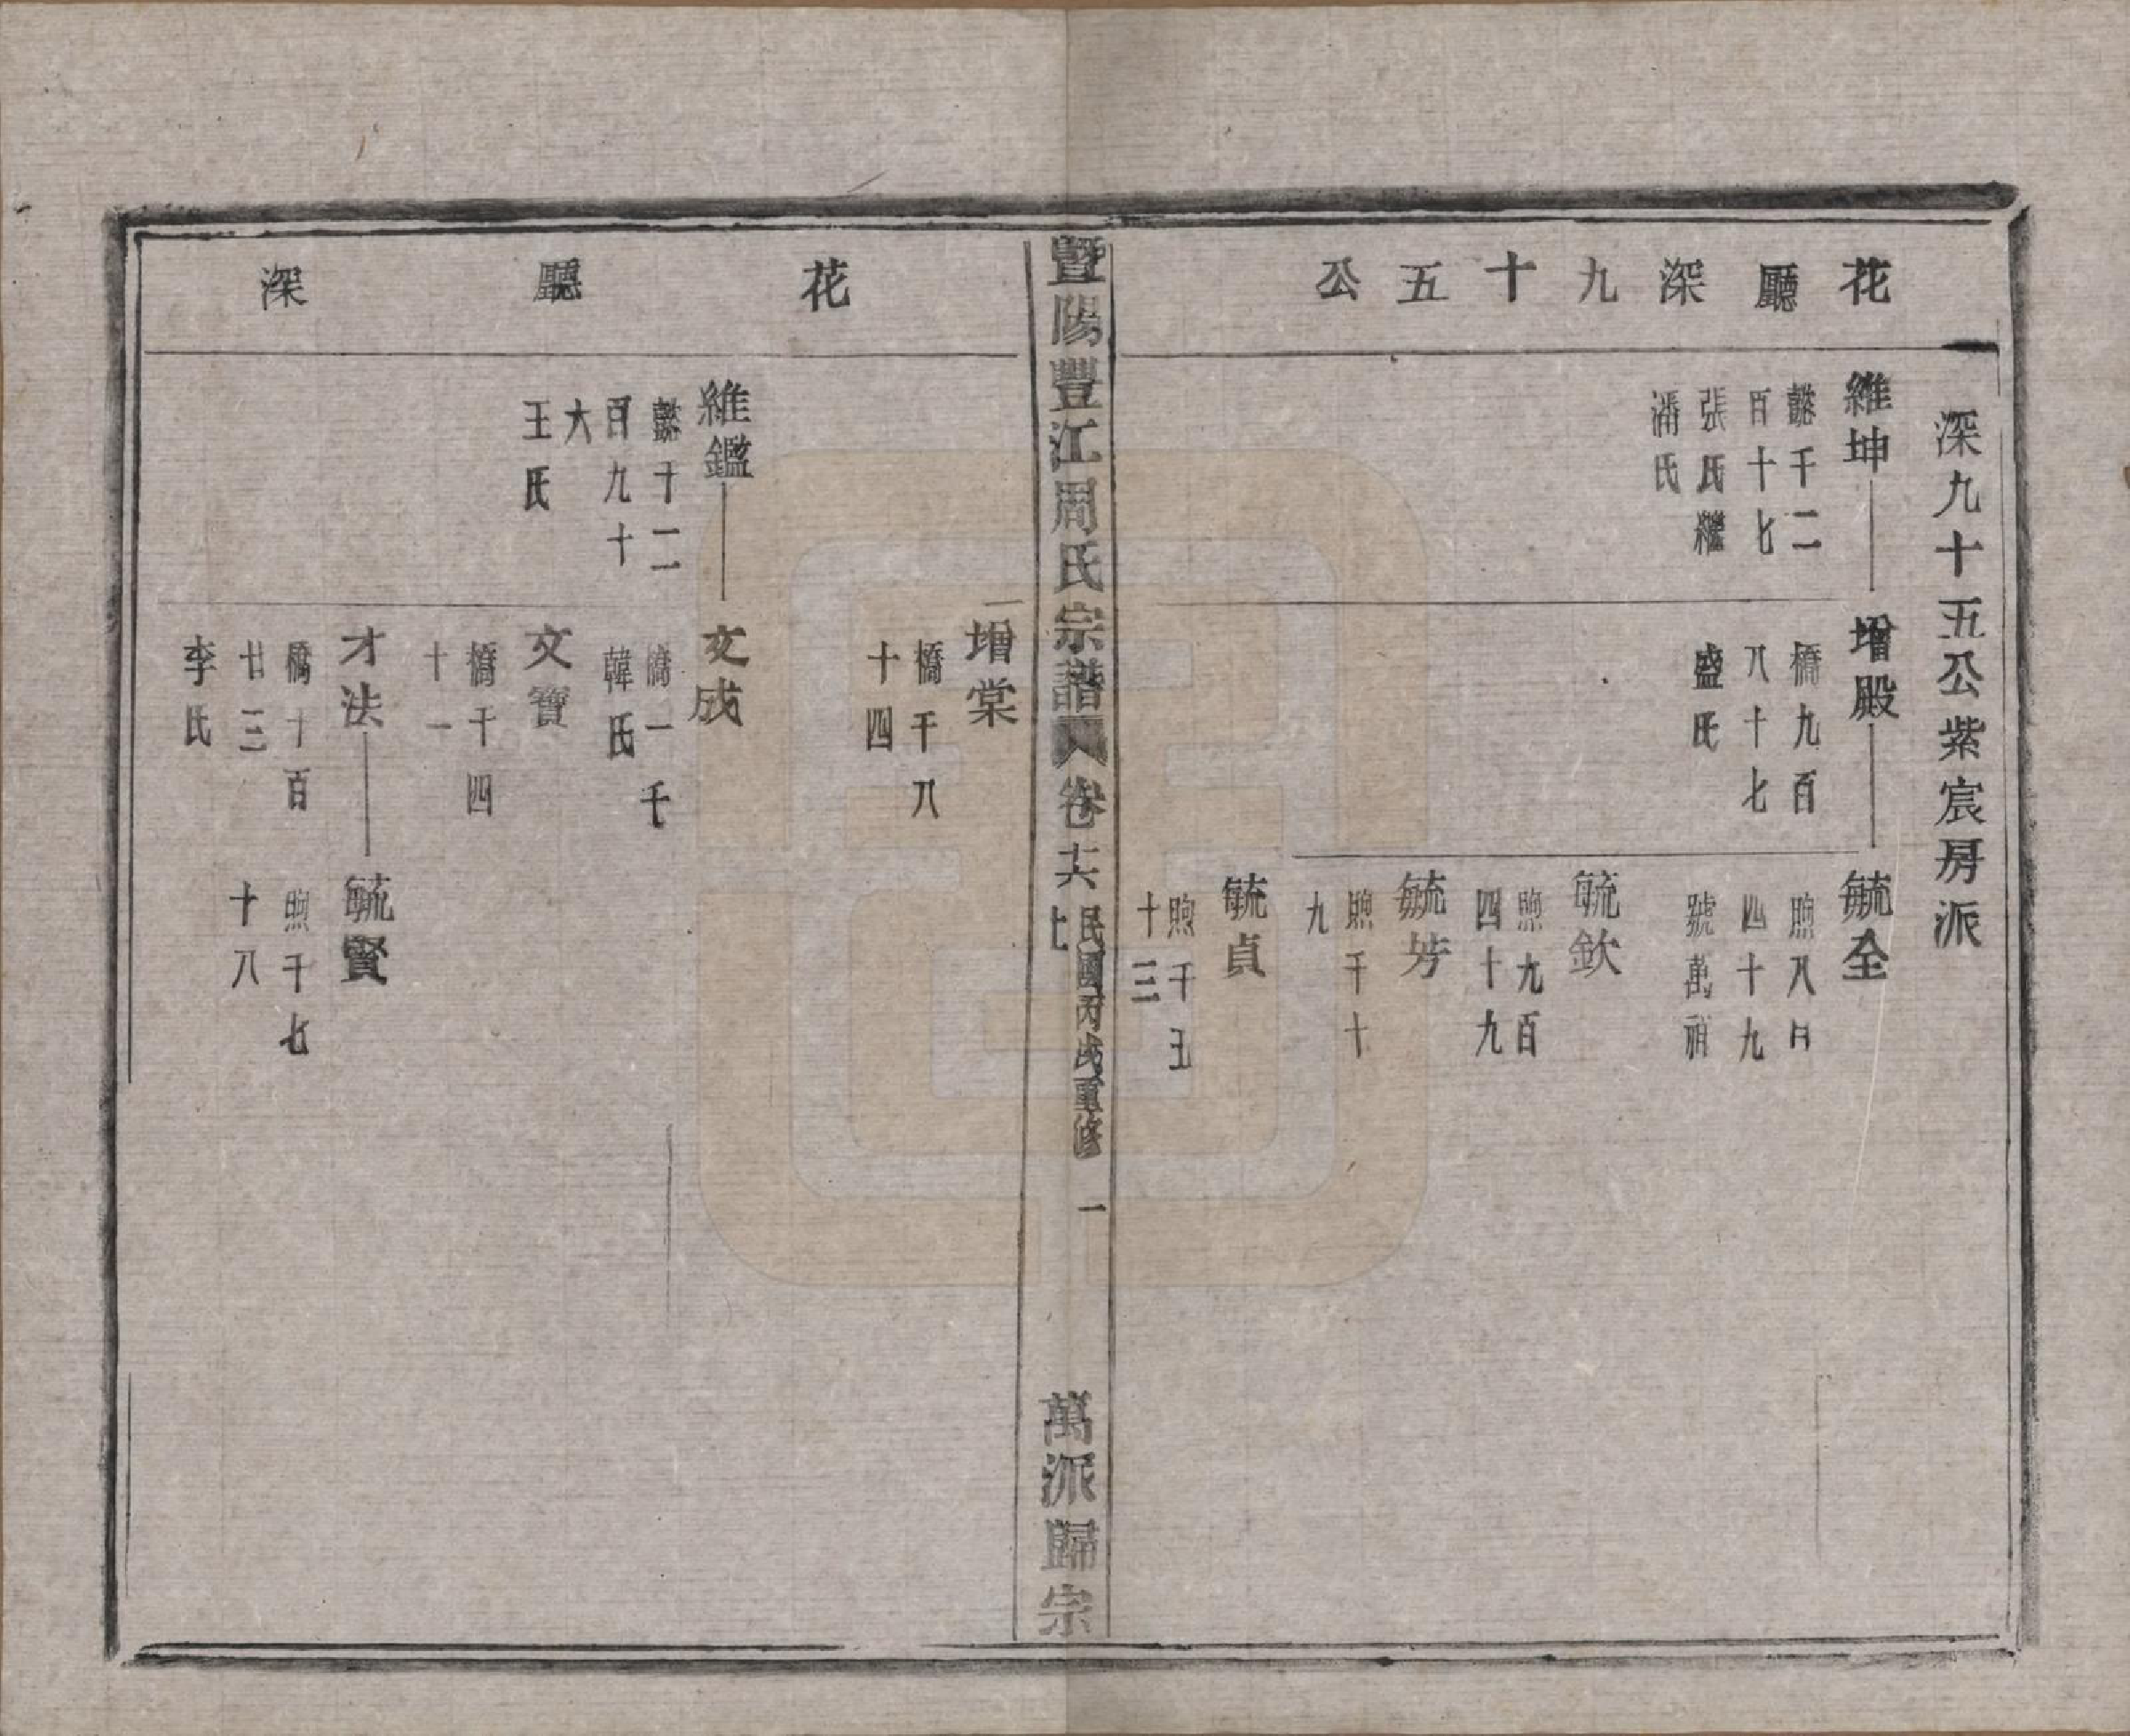 深九十五公紫宸房派
花廳深九十五公
維坤
懿千二
百十七
張氏繼
潘氏
增殿
橋九百
八十七
盛氏
毓全
煦八百
四十九
號萬
毓欽
煦九百
四十九
毓芳
煦千十
九
毓貞
煦千五
十三
暨陽豐江周氏宗譜
卷十六
民國丙戌重修
一
萬派歸宗
花廳深
增棠
橋千八
十四
維鑑
懿千二
百九十
六
王氏
文成
橋一千
韓氏
文寶
橋千四
十一
才法
橋十百
廿三
李氏
毓賢
煦千七
十八